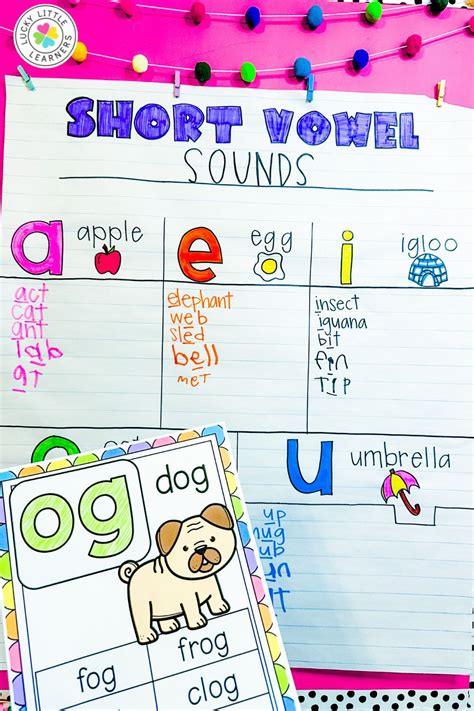 LUCKY LITTLE LEARNERS
SHORT VOWEL
SOUNDS
a apple
act
cat
ant
lab
at
e egg
elephant
web
sled
bell
met
i igloo
insect
iguana
bit
fin
TIP
u umbrella
up
og dog
fog
frog
clog